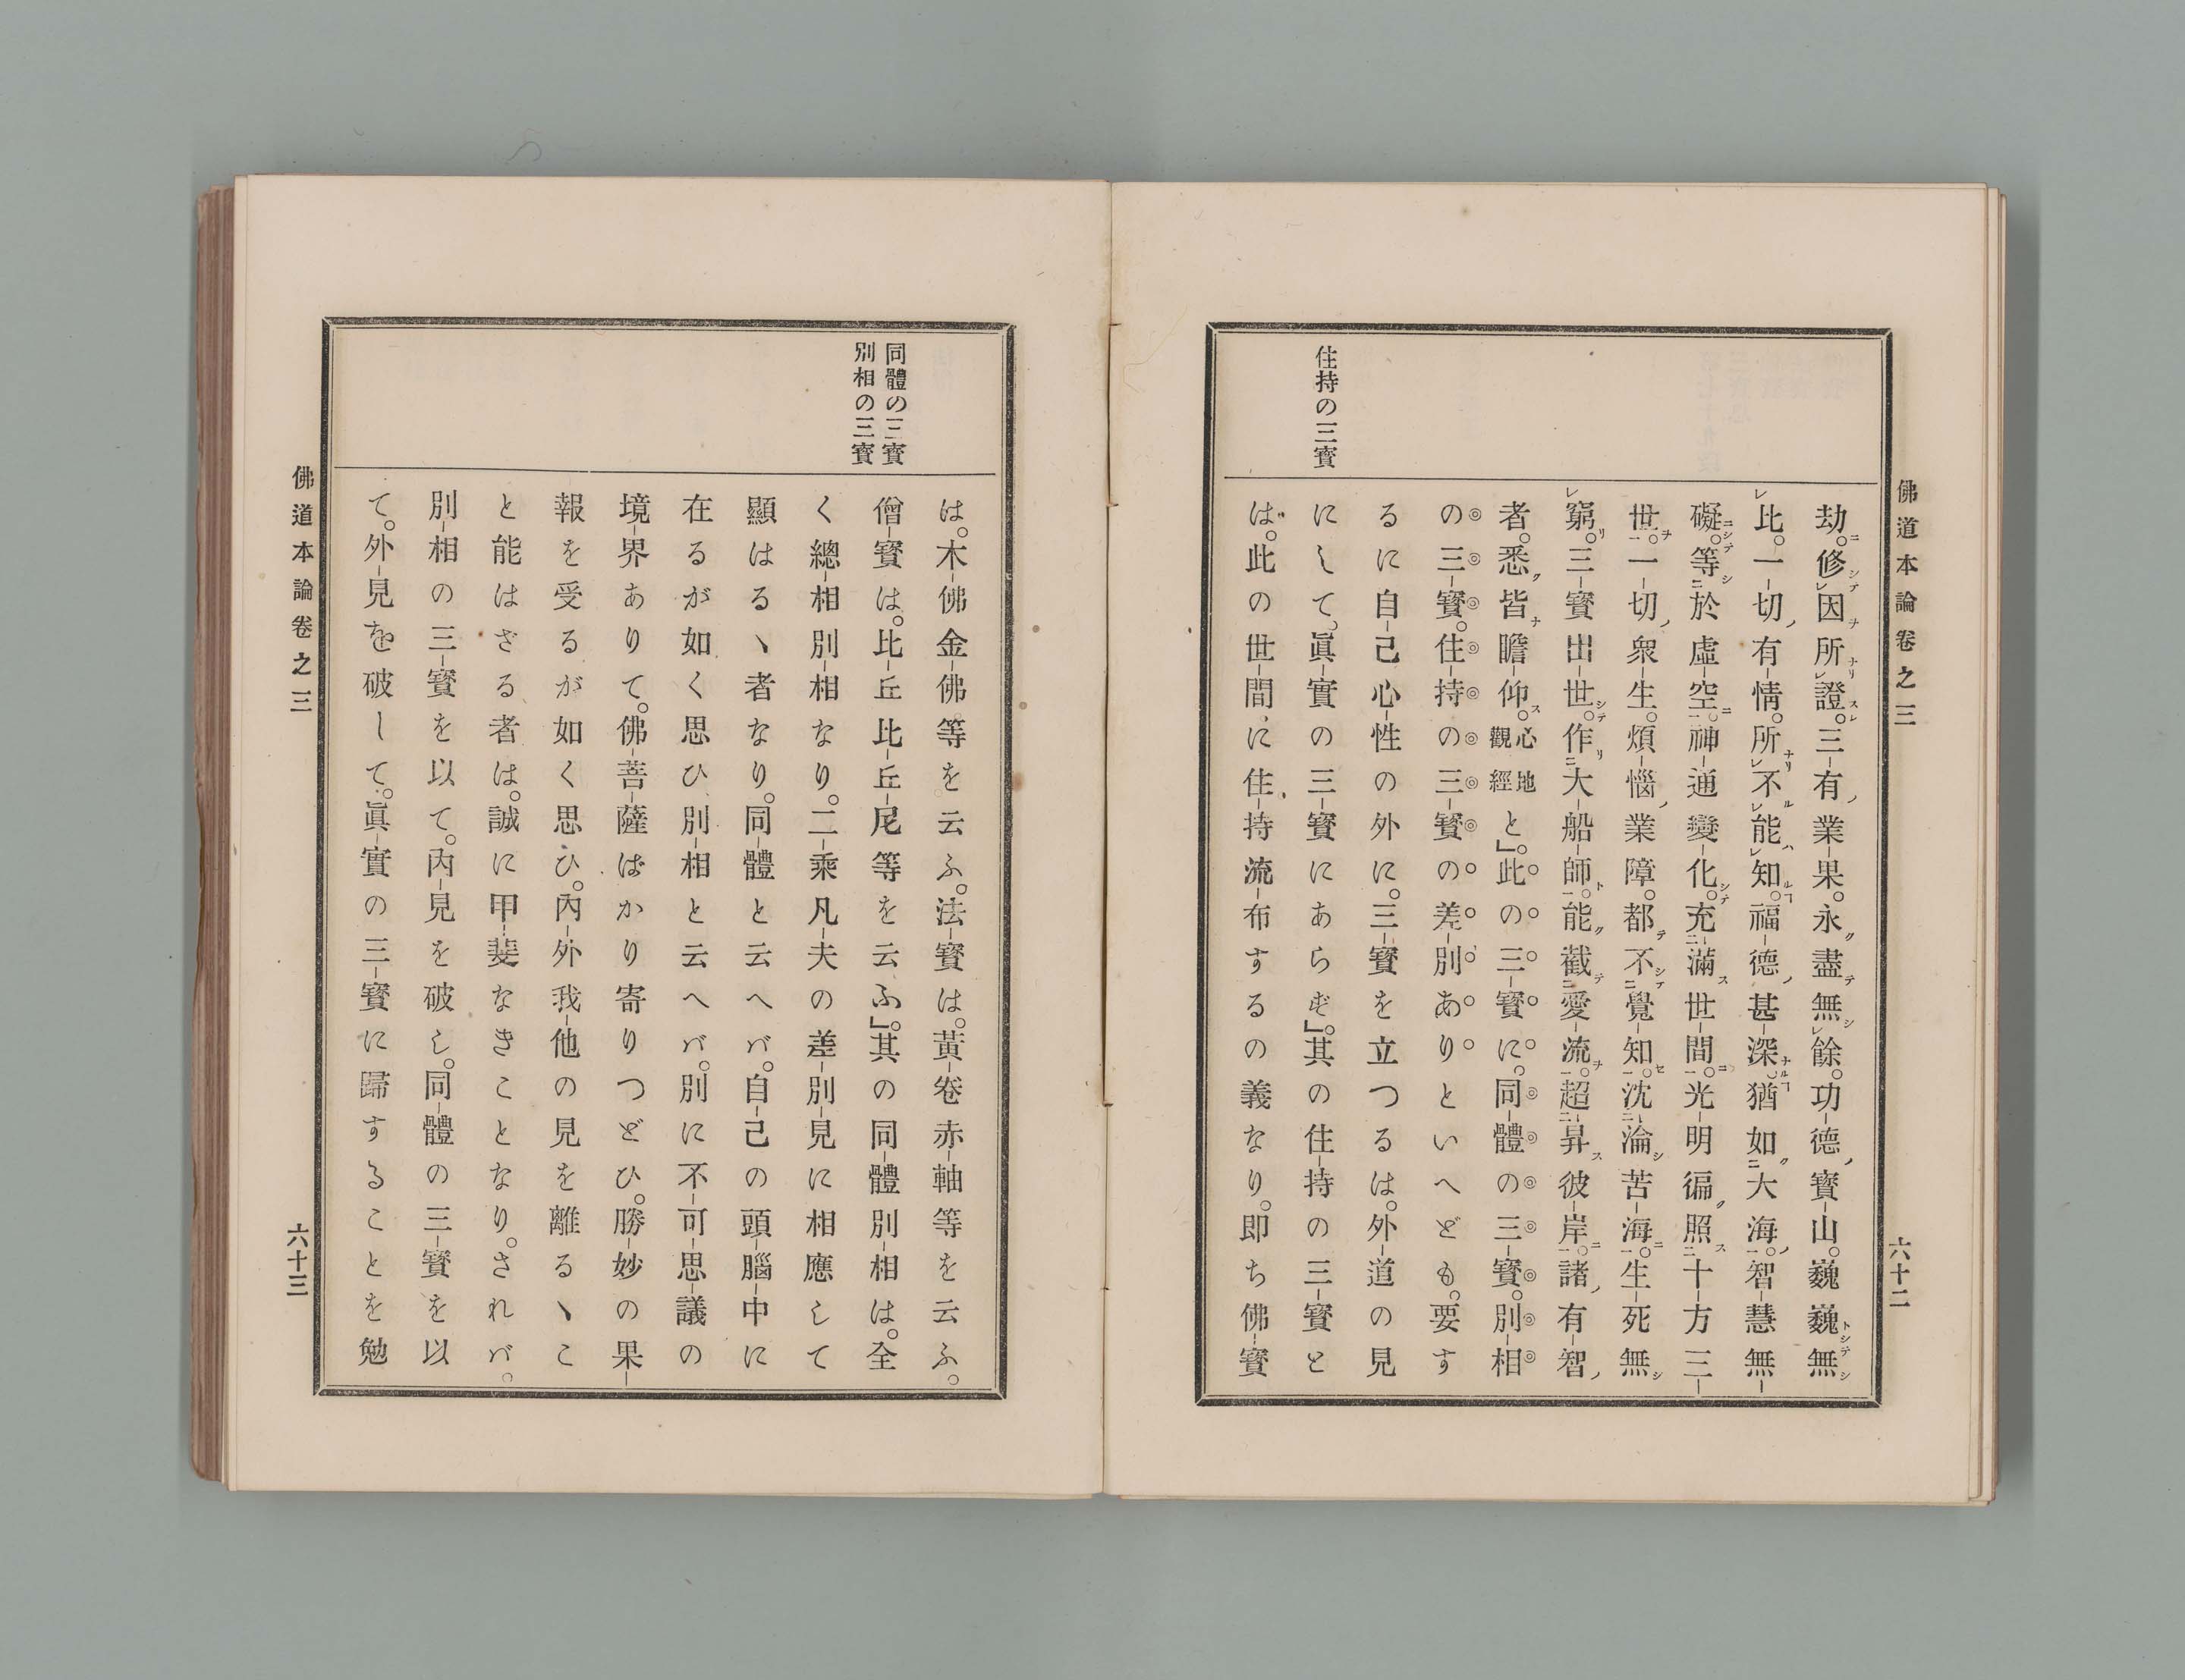 佛道本論卷之三
六十二
住持の三寶
劫。修因所證。三有業果。永盡無餘。功德寶山。巍巍無
比。一切有情。所不能知。福德甚深。猶如大海。智慧無
礙。等於虛空。神通變化。充滿世間。光明徧照十方三
世。一切衆生。煩惱業障。都不覺知。沈淪苦海。生死無
窮。三寶出世。作大船師。能截愛流。超昇彼岸。諸有智
者。悉皆瞻仰。心地觀經と」。此の三寶に。同體の三寶。別相
の三寶。住持の三寶の差別ありといへども。要す
るに自己心性の外に。三寶を立つるは。外道の見
にして。眞實の三寶にあらず」。其の住持の三寶と
は。此の世間に住持流布するの義なり。即ち佛寶
同體の三寶
別相の三寶
は。木佛金佛等を云ふ。法寶は。黃卷赤軸等を云ふ。
僧寶は。比丘比丘尼等を云ふ」。其の同體別相は。全
く總相別相なり。二乘凡夫の差別見に相應して
顯はるヽ者なり。同體と云へバ。自己の頭腦中に
在るが如く思ひ、別相と云へバ。別に不可思議の
境界ありて。佛菩薩ばかり寄りつどひ。勝妙の果
報を受るが如く思ひ。內外我他の見を離るヽこ
と能はざる者は。誠に甲斐なきことなり。されバ。
別相の三寶を以て。內見を破し。同體の三寶を以
て。外見を破して。眞實の三寶に歸することを勉
佛道本論卷之三
六十三